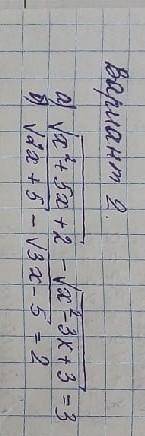 Вариант 2.
а) √x²+5x+2 - √x²-3x+3 = 3
б) √2x+5 - √3x-5 = 2